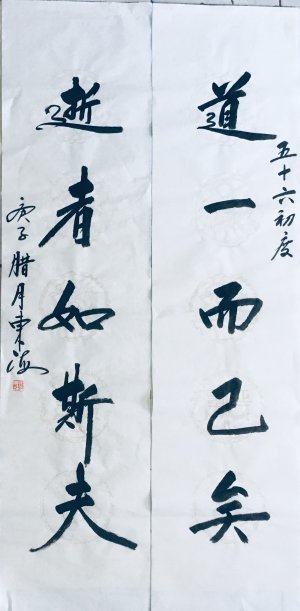 五十六初度
道一而已矣
逝者如斯夫
庚子腊月东海